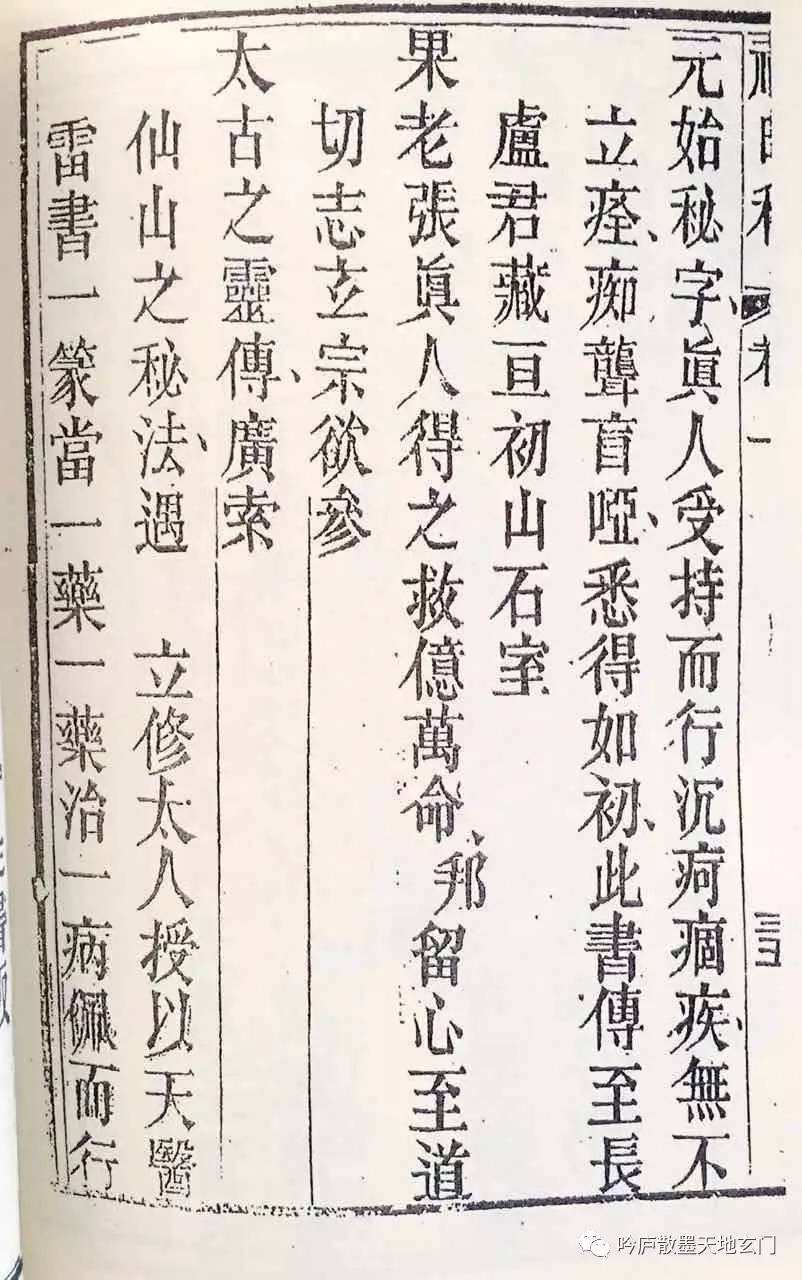 元始秘字、眞人受持而行沉疴痼疾、無不
立痊、痴聾盲啞、悉得如初、此書傳至長
盧君藏亘初山石室
果老張眞人得之救億萬命、邦留心至道
切志立宗欲參
太古之靈傳、廣索
仙山之秘法、遇　立修太人授以天醫
雷書一篆當一藥一藥治一病佩而行
三
吟庐散墨天地玄门